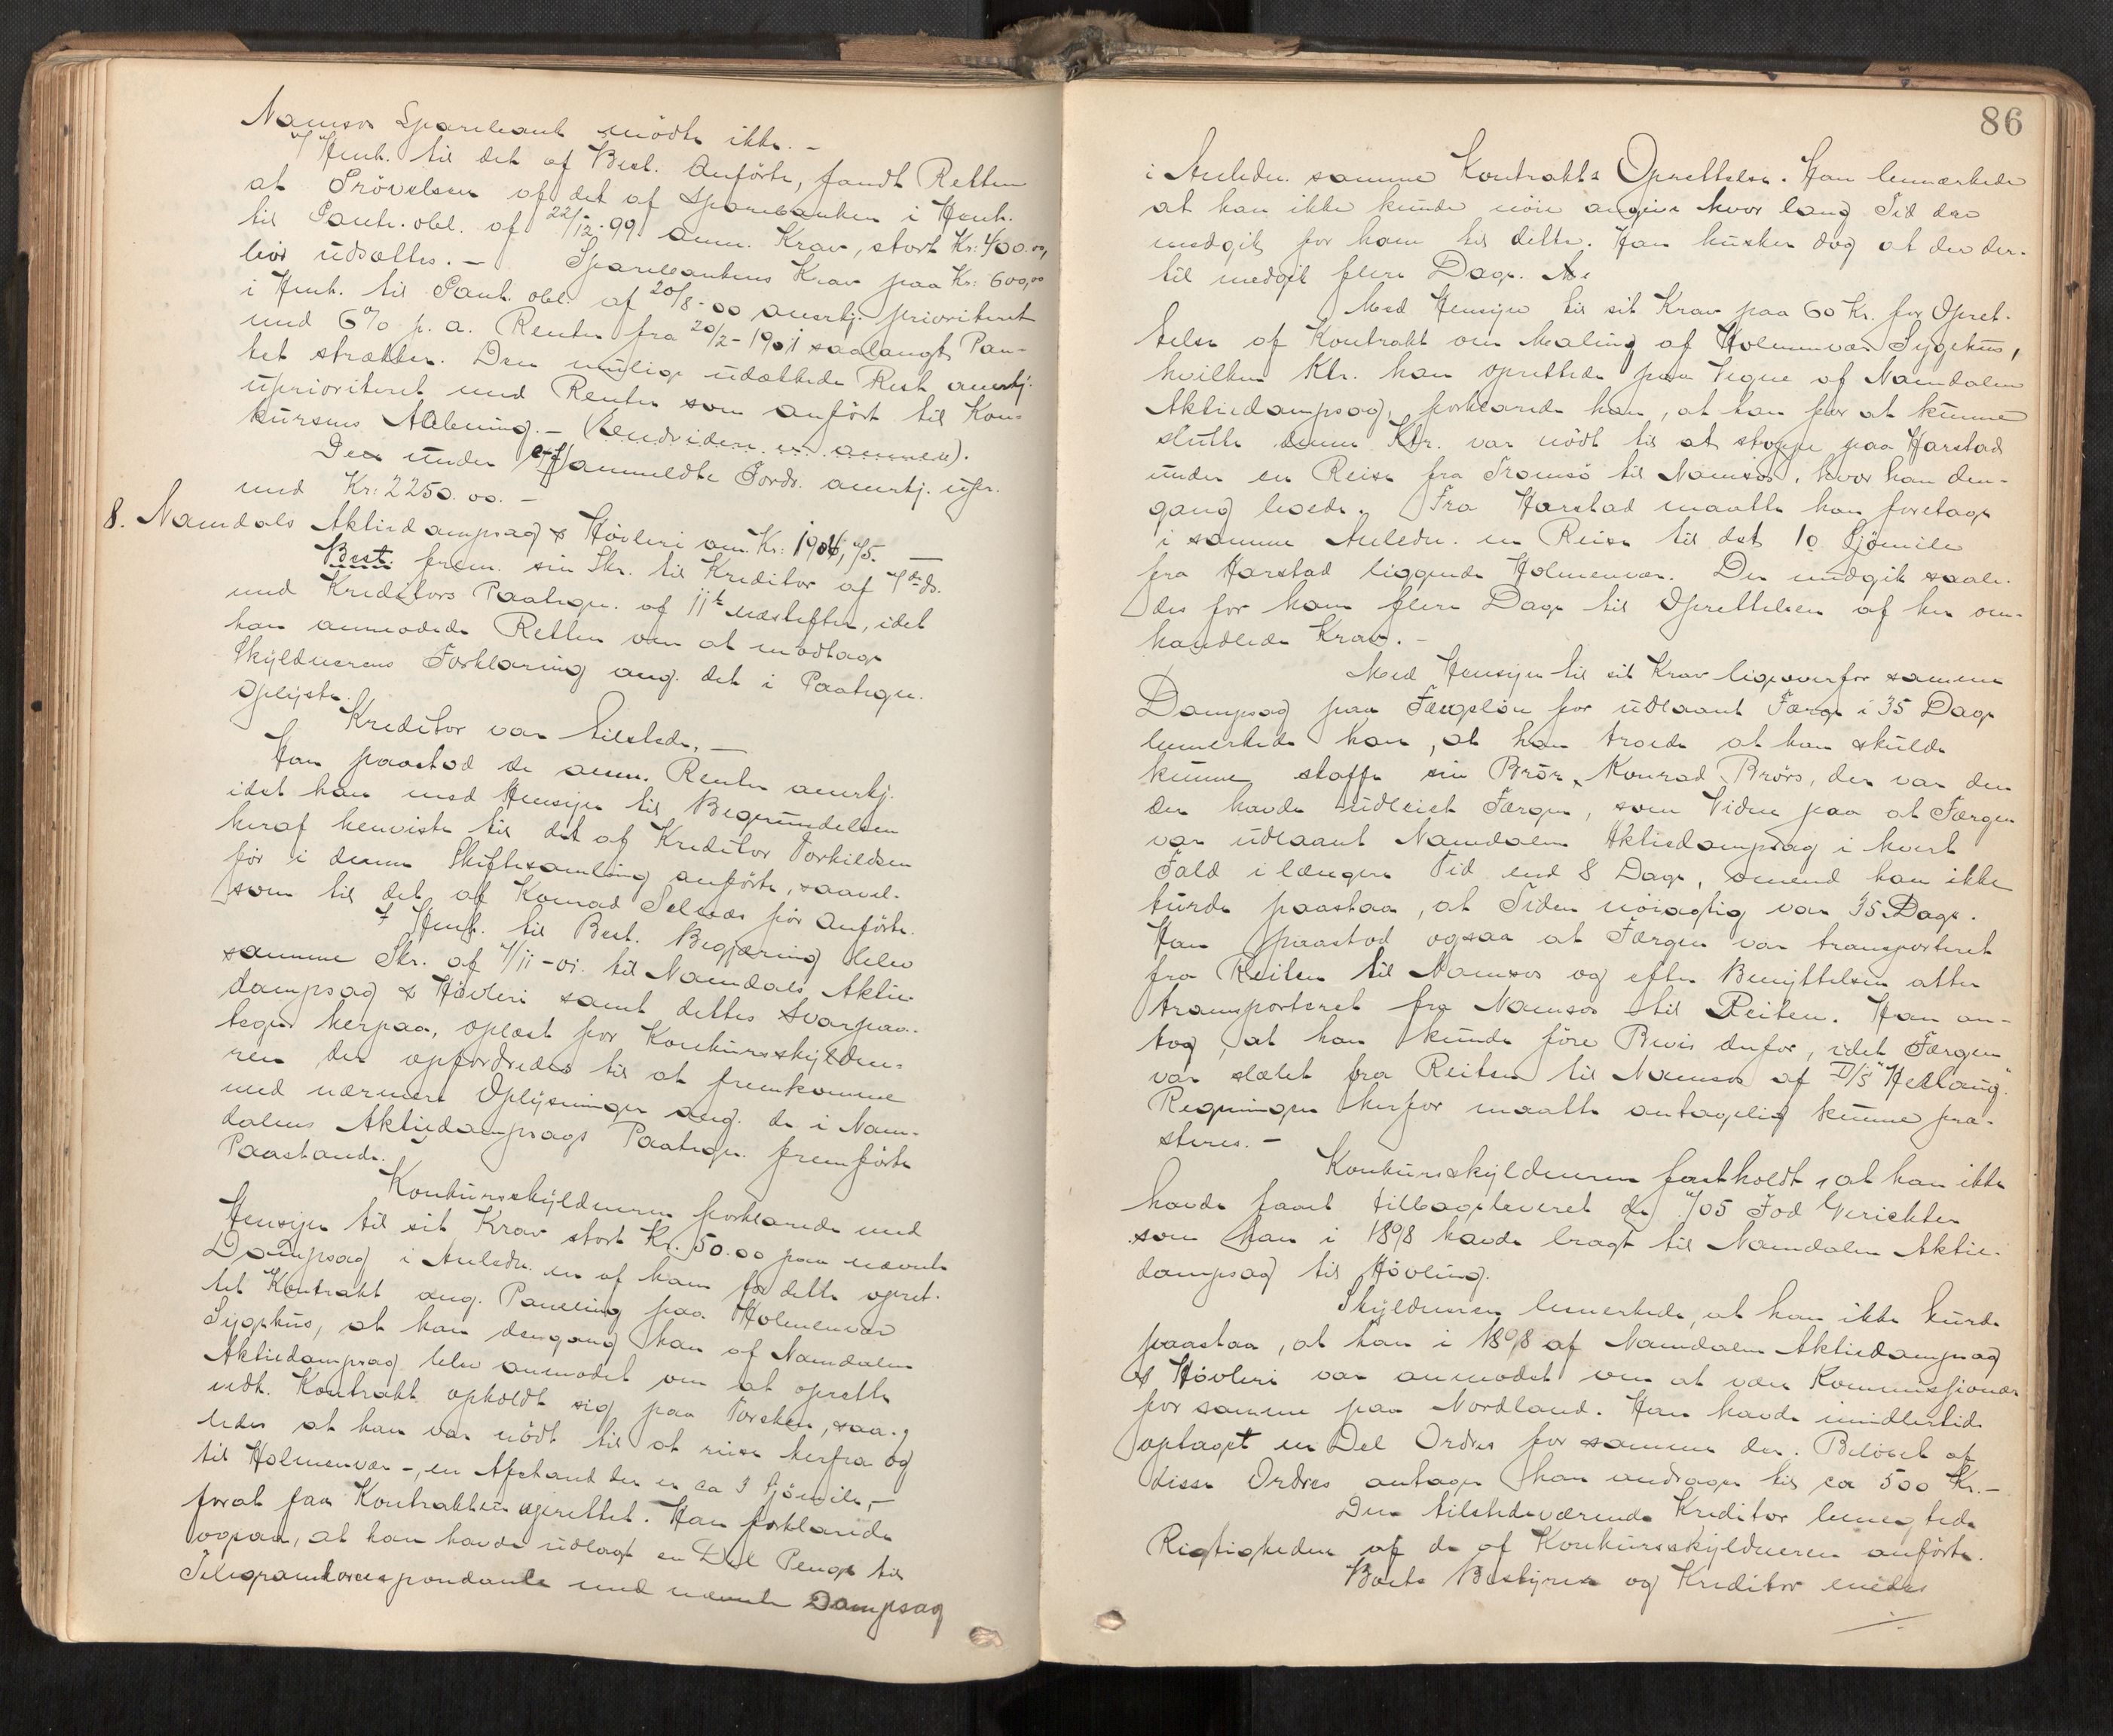 Namsos Sparebank mödte ikke. -
I Henh. til det af Best. Anförte, fandt Retten
at Prövelsen af det af Sparebanken i Henh.
til Pante. obl. af 22/12-99 anm. Krav, stort Kr: 400.00,
bör udsættes. - Sparebankens Krav paa Kr: 600,00
i Henh. til Pant. obl. af 20/8-00 anerkj. prioriteret
med 6% p. a. Renter fra 20/2-1901 saalangt Pan-
tet strækker. Den mulige udækkede Rest anerkj.
uprioriteret med Renter som anfört til Kon-
kursens Aabning. -
Den under anmeldte Fordr. anerkj. upr.
med Kr: 2250.00. -
8. Namdals Aktiedampsag & Hövleri anm. Kr:
Best. frem. sin Skr. til Kreditor af 7de ds.
med Kreditors Paategn. af 11te næstefter, idet
han anmodede Retten om at modtage
Skyldnerens Forklaring ang. det i Paategn.
Oplyste.
Kreditor var tilstede. -
Han paastod de anm. Renter anerkj.
idet han med Hensyn til Begrundelsen
heraf henviste til det af Kreditor Torkildsen
för i denne Skiftesamling anförte, saavel-
som til det af Konrad Selnæs för anförte.
I Henh. til Best. Begjæring blev
samme Skr. af 7/11-01. til Namdals Aktie-
dampsag & Hövleri samt dettes Svarpaa-
tegn. herpaa, oplæst for Konkursskyldne-
ren der opfordredes til at fremkomme
med nærmere Oplysninger ang. de i Nam-
dalens Aktiedampsags Paategn. fremförte
Paastande.
Konkursskyldneren forklarede med
Hensyn til sit Krav stort Kr. 50.00 paa nævnte
Dampsag i Anledn. en af ham for dette opret-
tet Kontrakt ang. Paneling paa Holmenvær
Sygehus, at han dengang han af Namdalen
Aktiedampsag blev anmodet om at oprette
nedt. Kontrakt opholdt sig paa Torsken, saa-
ledes at han var nödt til at reise herfra og
til Holmenvær -, en Afstand der er ca 3 Sjömile, -
forat faa Kontrakten oprettet. Han forklarede
ogsaa, at han havde udlagt en Del Penge til
Telegramkorrespondanse med nævnte Dampsag
86
i Anledn. samme Kontrakts Oprettelse. Han bemærkede
at han ikke kunde nöie angive hvor lang Tid der
medgik for ham til dette. Han husker dog at der der-
til medgik flere Dage.
Med Hensyn til sit Krav paa 60 Kr. for Opret-
telse af Kontrakt om Maling af Holmenvær Sygehus,
hvilken Ktr. han oprettede paa Vegne af Namdalen
Aktiedampsag, forklarede han, at han for at kunne
slutte denne Ktr. var nödt til at stoppe paa Harstad
under en Reise fra Tromsö til Namsos, hvor han den-
gang boede. Fra Harstad maatte han foretage
i samme Anledn. en Reise til det 10 Sjömile
fra Harstad liggende Holmenvær. Der medgik saale-
des for ham flere Dage til Oprettelsen af her om-
handlede Krav. -
Med Hensyn til sit Krav ligeoverfor samme
Dampsag paa Færgelön for udlaant Færge i 35 Dage
bemerkede han, at han troede at han skulde
kunne skaffe sin Bror, Konrad Brörs, der var den
der havde udleiet Færgen, som Vidne paa at Færgen
var udlaant Namdalen Aktiedampsag i hvert
Fald i længere Tid end 8 Dage, omend han ikke
turde paastaa, at Tiden nöiagtig var 35 Dage.
Han paastod ogsaa at Færgen var transporteret
fra Reiten til Namsos og efter Benyttelsen atter
transporteret fra Namsos til Reiten. Han an-
tog, at han kunde före Bevis derfor, idet Færgen
var slæbt fra Reiten til Namsos af D/S "Hellaug".
Regningen herfor maatte antagelig kunne præ-
steres. -
Konkursskyldneren fastholdt, at han ikke
havde faaet tilbageleveret de Fod Gerichter
som han i 1898 havde bragt til Namdalen Aktie-
dampsag til Hövling.
Skyldneren bemerkede, at han ikke turde
paastaa, at han i 1898 af Namdalen Aktiedampsag
& Hövleri var anmodet om at være Kommissjonær
for samme paa Nordland. Han havde imidlertid
optaget en Del Ordres for samme der. Belöbet af
disse Ordres antager han andrager til ca 500 Kr. -
Den tilstedeværende Kreditor benegtede
Rigtigheden af de af Konkursskyldneren anförte.
Boets Bestyrer og Kreditor enedes